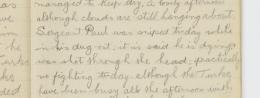 as managed to keep dry, a lovely afternoon
although clouds are still hanging about.
Sergeant Paul was sniped today while
the in his dug out, it is said he is dying,
was shot through the head. practically
no fighting today although the Turks
have been busy all the afternoon with